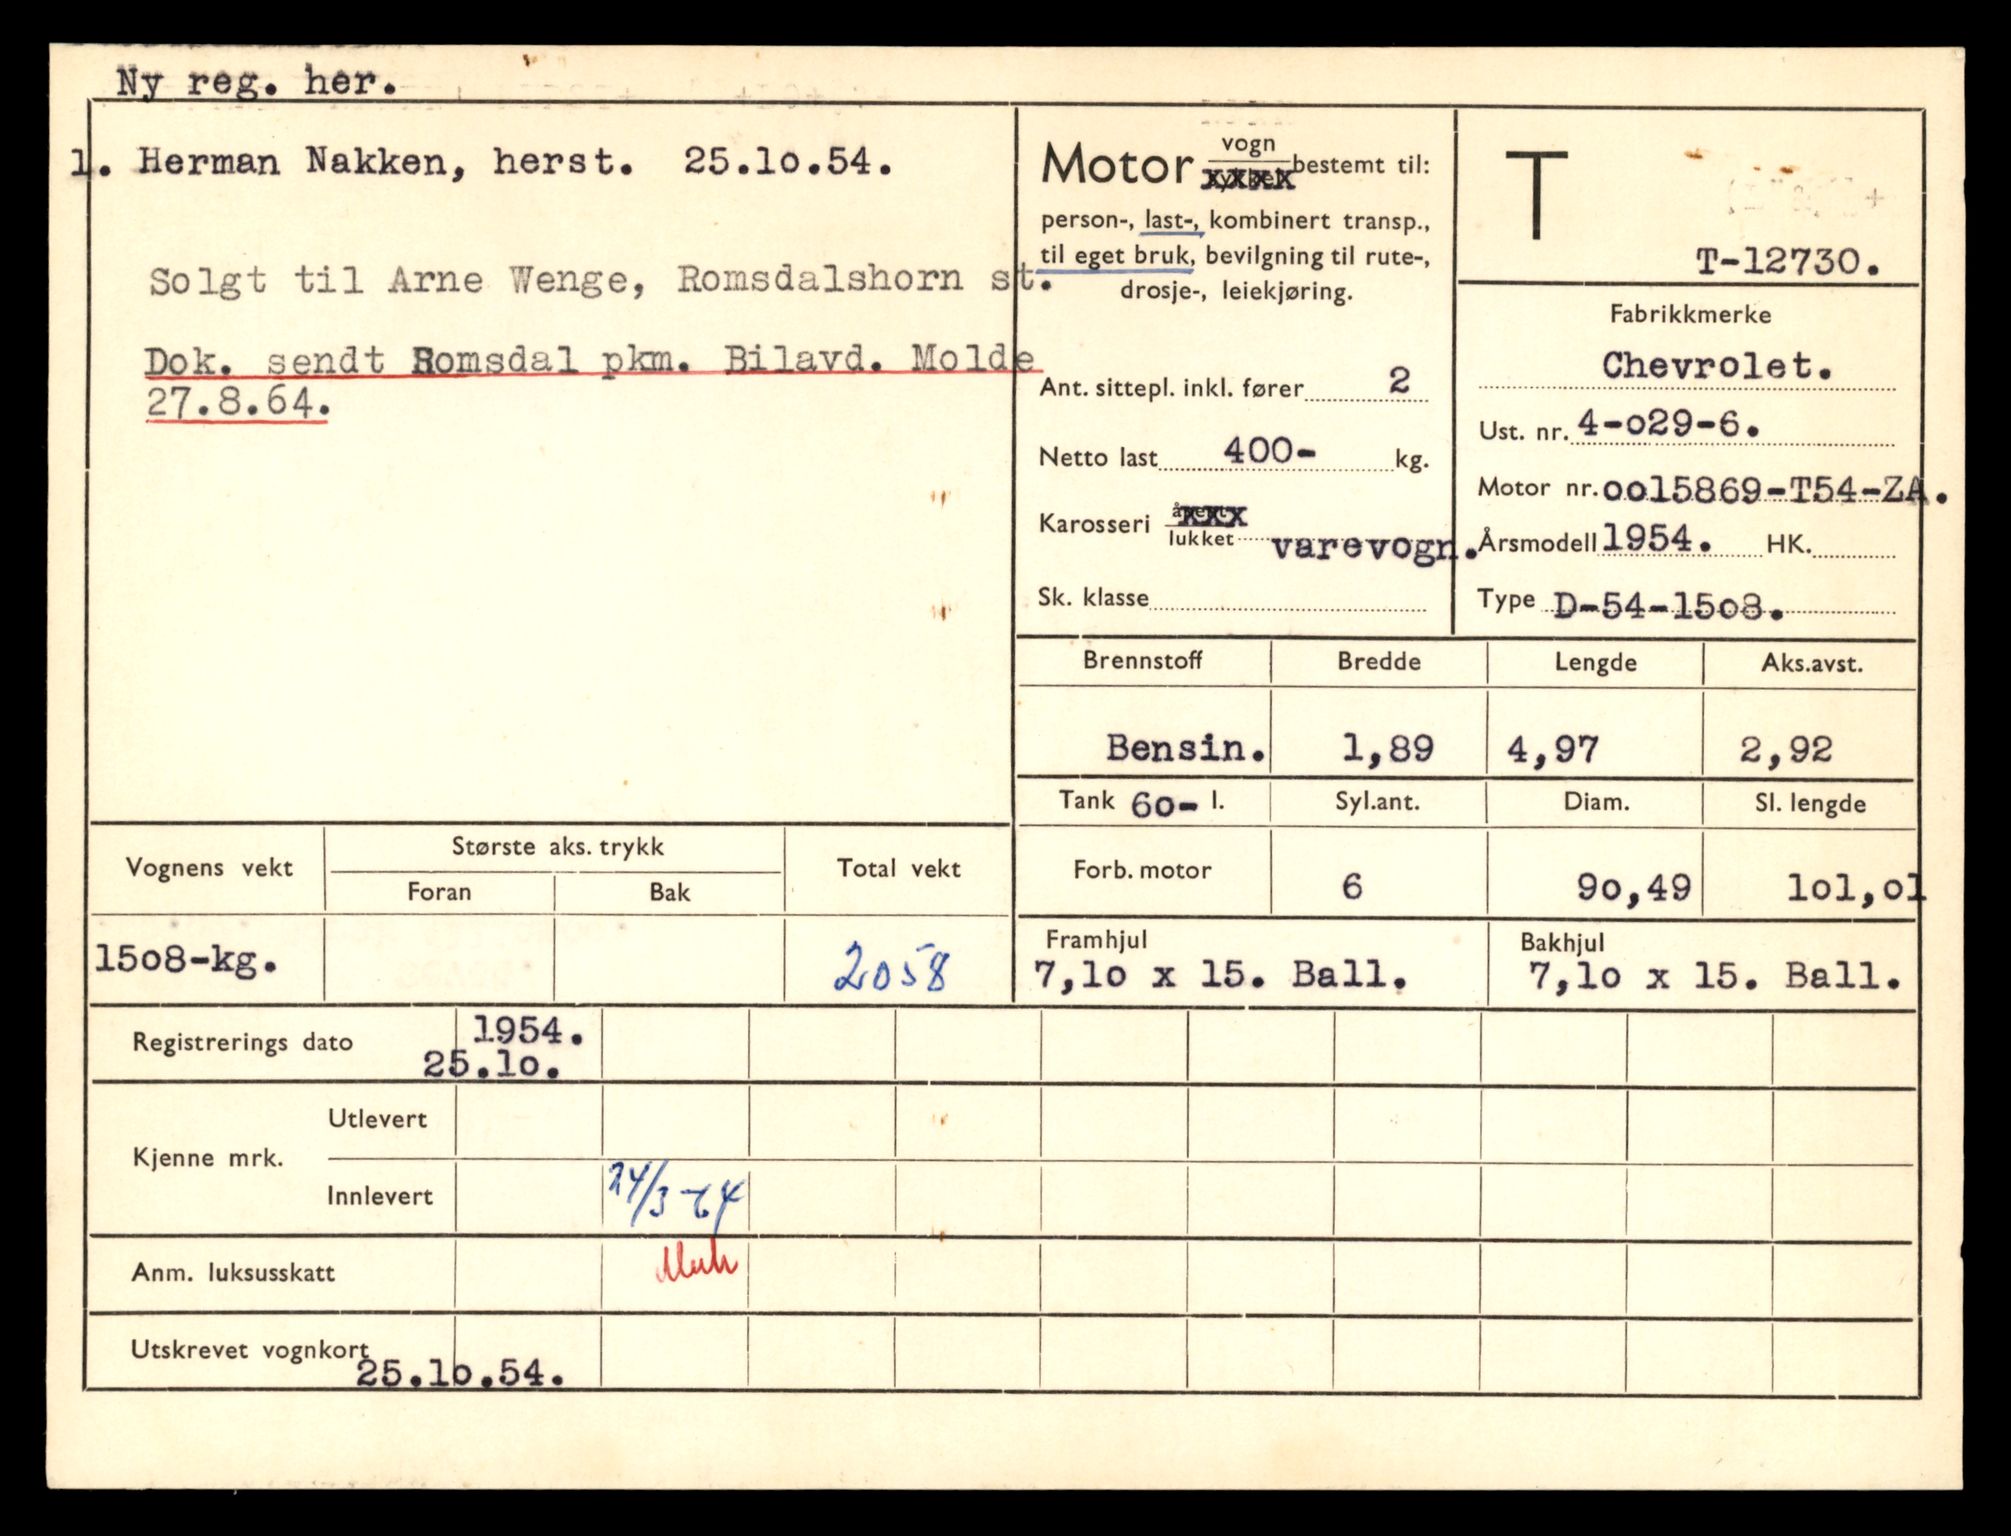 Ny reg. her.
1. Herman Nakken, herst. 25.1o.54.
Solgt til Arne Wenge, Romsdalshorn st.
Dok. sendt Romsdal pkm. Bilavd. Molde
27.8.64.
Motor vogn bestemt til:
person-, last-, kombinert transp.,
til eget bruk, bevilgning til rute-,
drosje-, leiekjøring.
Ant. sittepl. inkl. fører 2
Netto last 400- kg.
Karosseri åpent
lukket varevogn.
Sk. klasse
T
T-12730.
Fabrikkmerke
Chevrolet.
Ust. nr. 4-o29-6.
Motor nr. oo15869-T54-ZA.
Årsmodell 1954. HK.
Type D-54-15o8.
Brennstoff Bredde Lengde Aks.avst.
Bensin. 1,89 4,97 2,92
Tank 6o- l. Syl.ant. Diam. Sl. lengde
Forb. motor 6 9o,49 1o1,o1
Framhjul Bakhjul
7,1o x 15. Ball. 7,1o x 15. Ball.
Vognens vekt Største aks. trykk Total vekt
Foran Bak
15o8-kg. 2058
Registrerings dato 1954.
25.1o.
Kjenne mrk. Utlevert
Innlevert 24/3-64
Anm. luksusskatt
Utskrevet vognkort
25.1o.54.